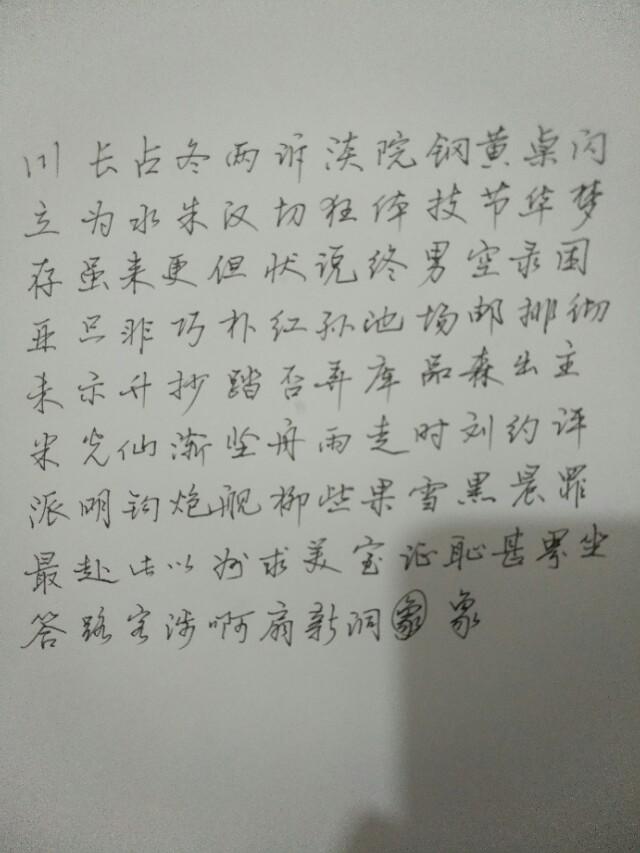 川长占冬两诉淡院钢黄桌闪
立为水朱汉切狂体技节华梦
存虽来更但状说终男空录困
亚只非巧朴红孙池场邮排彻
未示升抄踏否弄库品森出主
米光仙渐坚舟雨走时刘约评
派明钩炮舰柳些果雪黑晨罪
最赴以求美室证耻甚界坐
答路客涉啊扇新洞象象